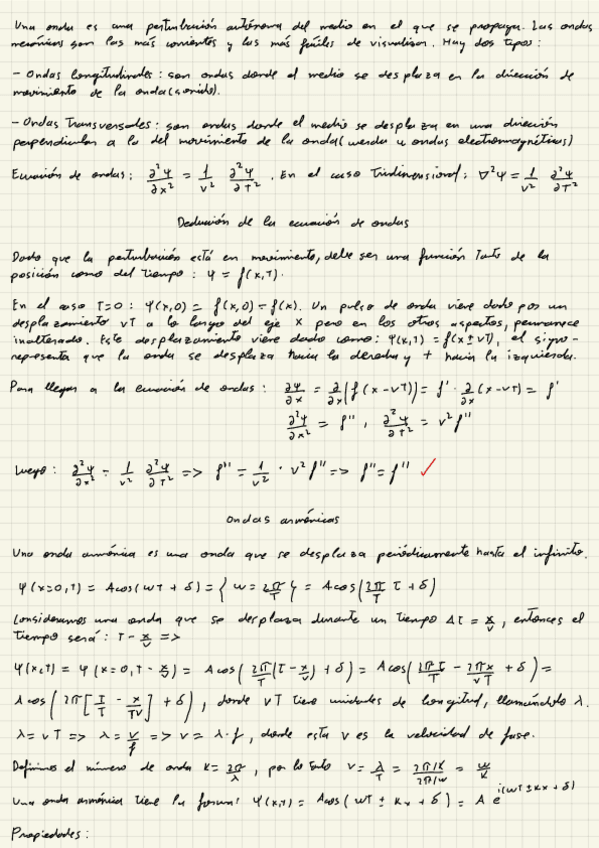 Una onda es una perturbación autónoma del medio en el que se propaga. Las ondas
mecánicas son las más corrientes y las más fáciles de visualizar. Hay dos tipos:
- Ondas longitudinales: son ondas donde el medio se desplaza en la dirección de
movimiento de la onda (sonido).
- Ondas Transversales: son ondas donde el medio se desplaza en una dirección
perpendicular a la del movimiento de la onda (cuerda u ondas electromagnéticas)
Ecuación de ondas: ∂²Ψ/∂x² = 1/v² ∂²Ψ/∂T². En el caso Tridimensional: ∇²Ψ = 1/v² ∂²Ψ/∂T²
Deducción de la ecuación de ondas
Dado que la perturbación está en movimiento, debe ser una función tanto de la
posición como del tiempo: Ψ = f(x,T).
En el caso T=0: Ψ(x,0) = f(x,0) = f(x). Un pulso de onda viene dado por un
desplazamiento vT a lo largo del eje x pero en los otros aspectos, permanece
inalterado. Este desplazamiento viene dado como: Ψ(x,T) = f(x±vT), el signo -
representa que la onda se desplaza hacia la derecha y + hacia la izquierda.
Para llegar a la ecuación de ondas: ∂Ψ/∂x = ∂/∂x (f(x-vT)) = f' · ∂/∂x (x-vT) = f'
∂²Ψ/∂x² = f'', ∂²Ψ/∂T² = v² f''
Luego: ∂²Ψ/∂x² = 1/v² ∂²Ψ/∂T² => f'' = 1/v² · v² f'' => f'' = f'' ✓
Ondas armónicas
Una onda armónica es una onda que se desplaza periódicamente hasta el infinito.
Ψ(x=0,T) = A cos(ωT + δ) = { ω = 2π/T } = A cos(2π/T T + δ)
Consideramos una onda que se desplaza durante un tiempo ΔT = x/v, entonces el
tiempo será: T - x/v =>
Ψ(x,T) = Ψ(x=0, T - x/v) = A cos(2π/T (T - x/v) + δ) = A cos(2πT/T - 2πx/vT + δ) =
A cos(2π[T/T - x/Tv] + δ), donde vT tiene unidades de longitud, llamándolo λ.
λ = vT => λ = v/f => v = λ·f, donde esta v es la velocidad de fase.
Definimos el número de onda K = 2π/λ, por lo tanto v = λ/T = (2π/K)/(2π/ω) = ω/K
Una onda armónica tiene la forma: Ψ(x,T) = A cos(ωT ± Kx + δ) = A e^i(ωT ± Kx + δ)
Propiedades: